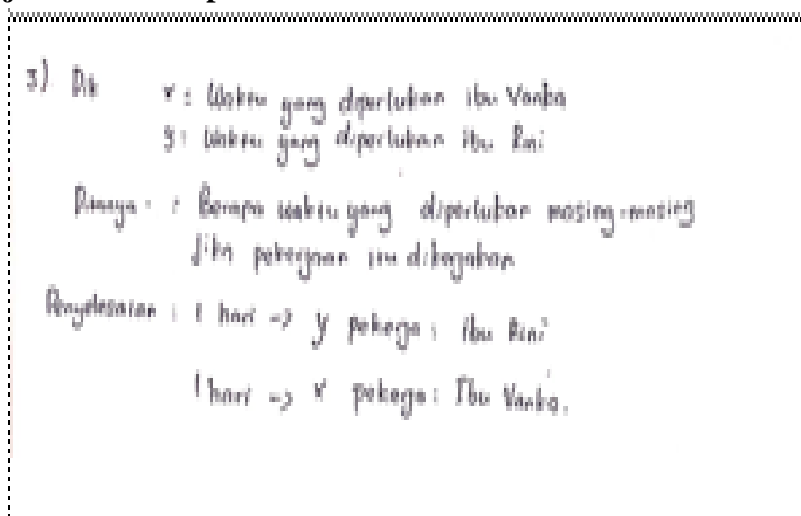 3) Dik x : Waktu yang diperlukan ibu Vanka
y : Waktu yang diperlukan ibu Rini
Ditanya : Berapa waktu yang diperlukan masing-masing
Jika pekerjaan itu dikerjakan
Penyelesaian : 1 hari => y pekerja : ibu Rini
1 hari => x pekerja : Ibu Vanka.